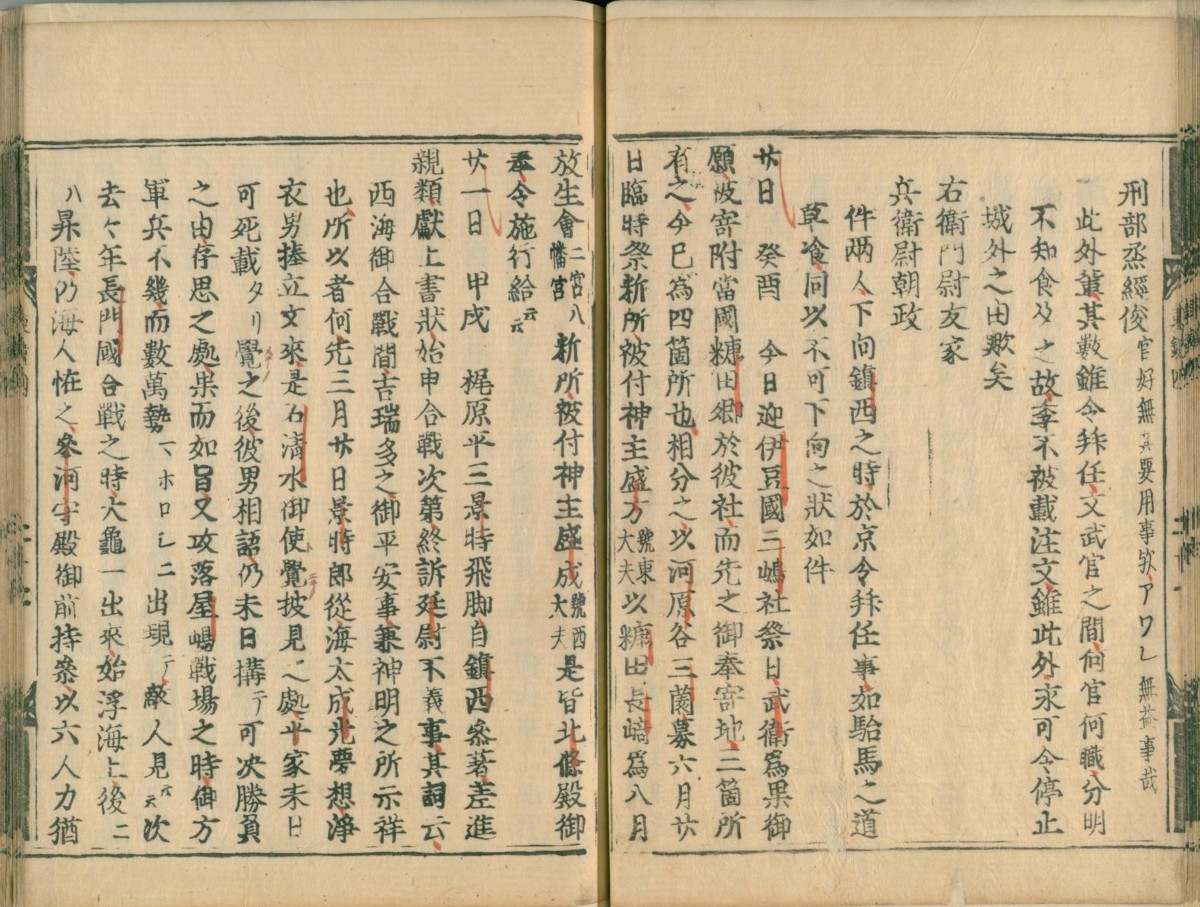 刑部烝經俊 官好無其要用事欤アワレ無益事哉
此外輩其數雖令拜任文武官之間何官何職分明
不知食及之故季不被載注文雖此外永可令停止
城外之由歟矣
右衛門尉友家
兵衛尉朝政
件兩人下向鎮西之時於京令拜任事如駘馬之道
草飡同以不可下向之狀如件
廿日 癸酉 今日迎伊豆國三嶋社祭日武衛爲果御
願被寄附當國糠田郷於彼社而先之御奉寄地二箇所
有之今已為四箇所也相分之以河原谷三薗募六月廿
日臨時祭新所被付神主盛方號東大夫以糠田長﨑爲八月
放生會二宮八幡宮新所被付神主盛成號西大夫是皆北條殿御
奉令施行給云云
廿一日 甲戌 梶原平三景時飛脚自鎮西參著差進
親類獻上書狀始申合戰次第終訴廷尉不義事其詞云
西海御合戰間吉瑞多之御平安事兼神明之所示祥
也所以者何先三月廿日景時郎從海太成光夢想淨
衣男捧立文來是石清水御使覺披見之處平家未日
可死載タリ覺之後彼男相語仍未日構テ可决勝負
之由存思之處果而如旨又攻落屋嶋戰場之時御方
軍兵不幾而數萬勢マホロシニ出現テ敵人見云云次
去々年長門國合戰之時大龜一出來始浮海上後ニ
ハ昇陸仍海人恠之參河守殿御前持參以六人力猶